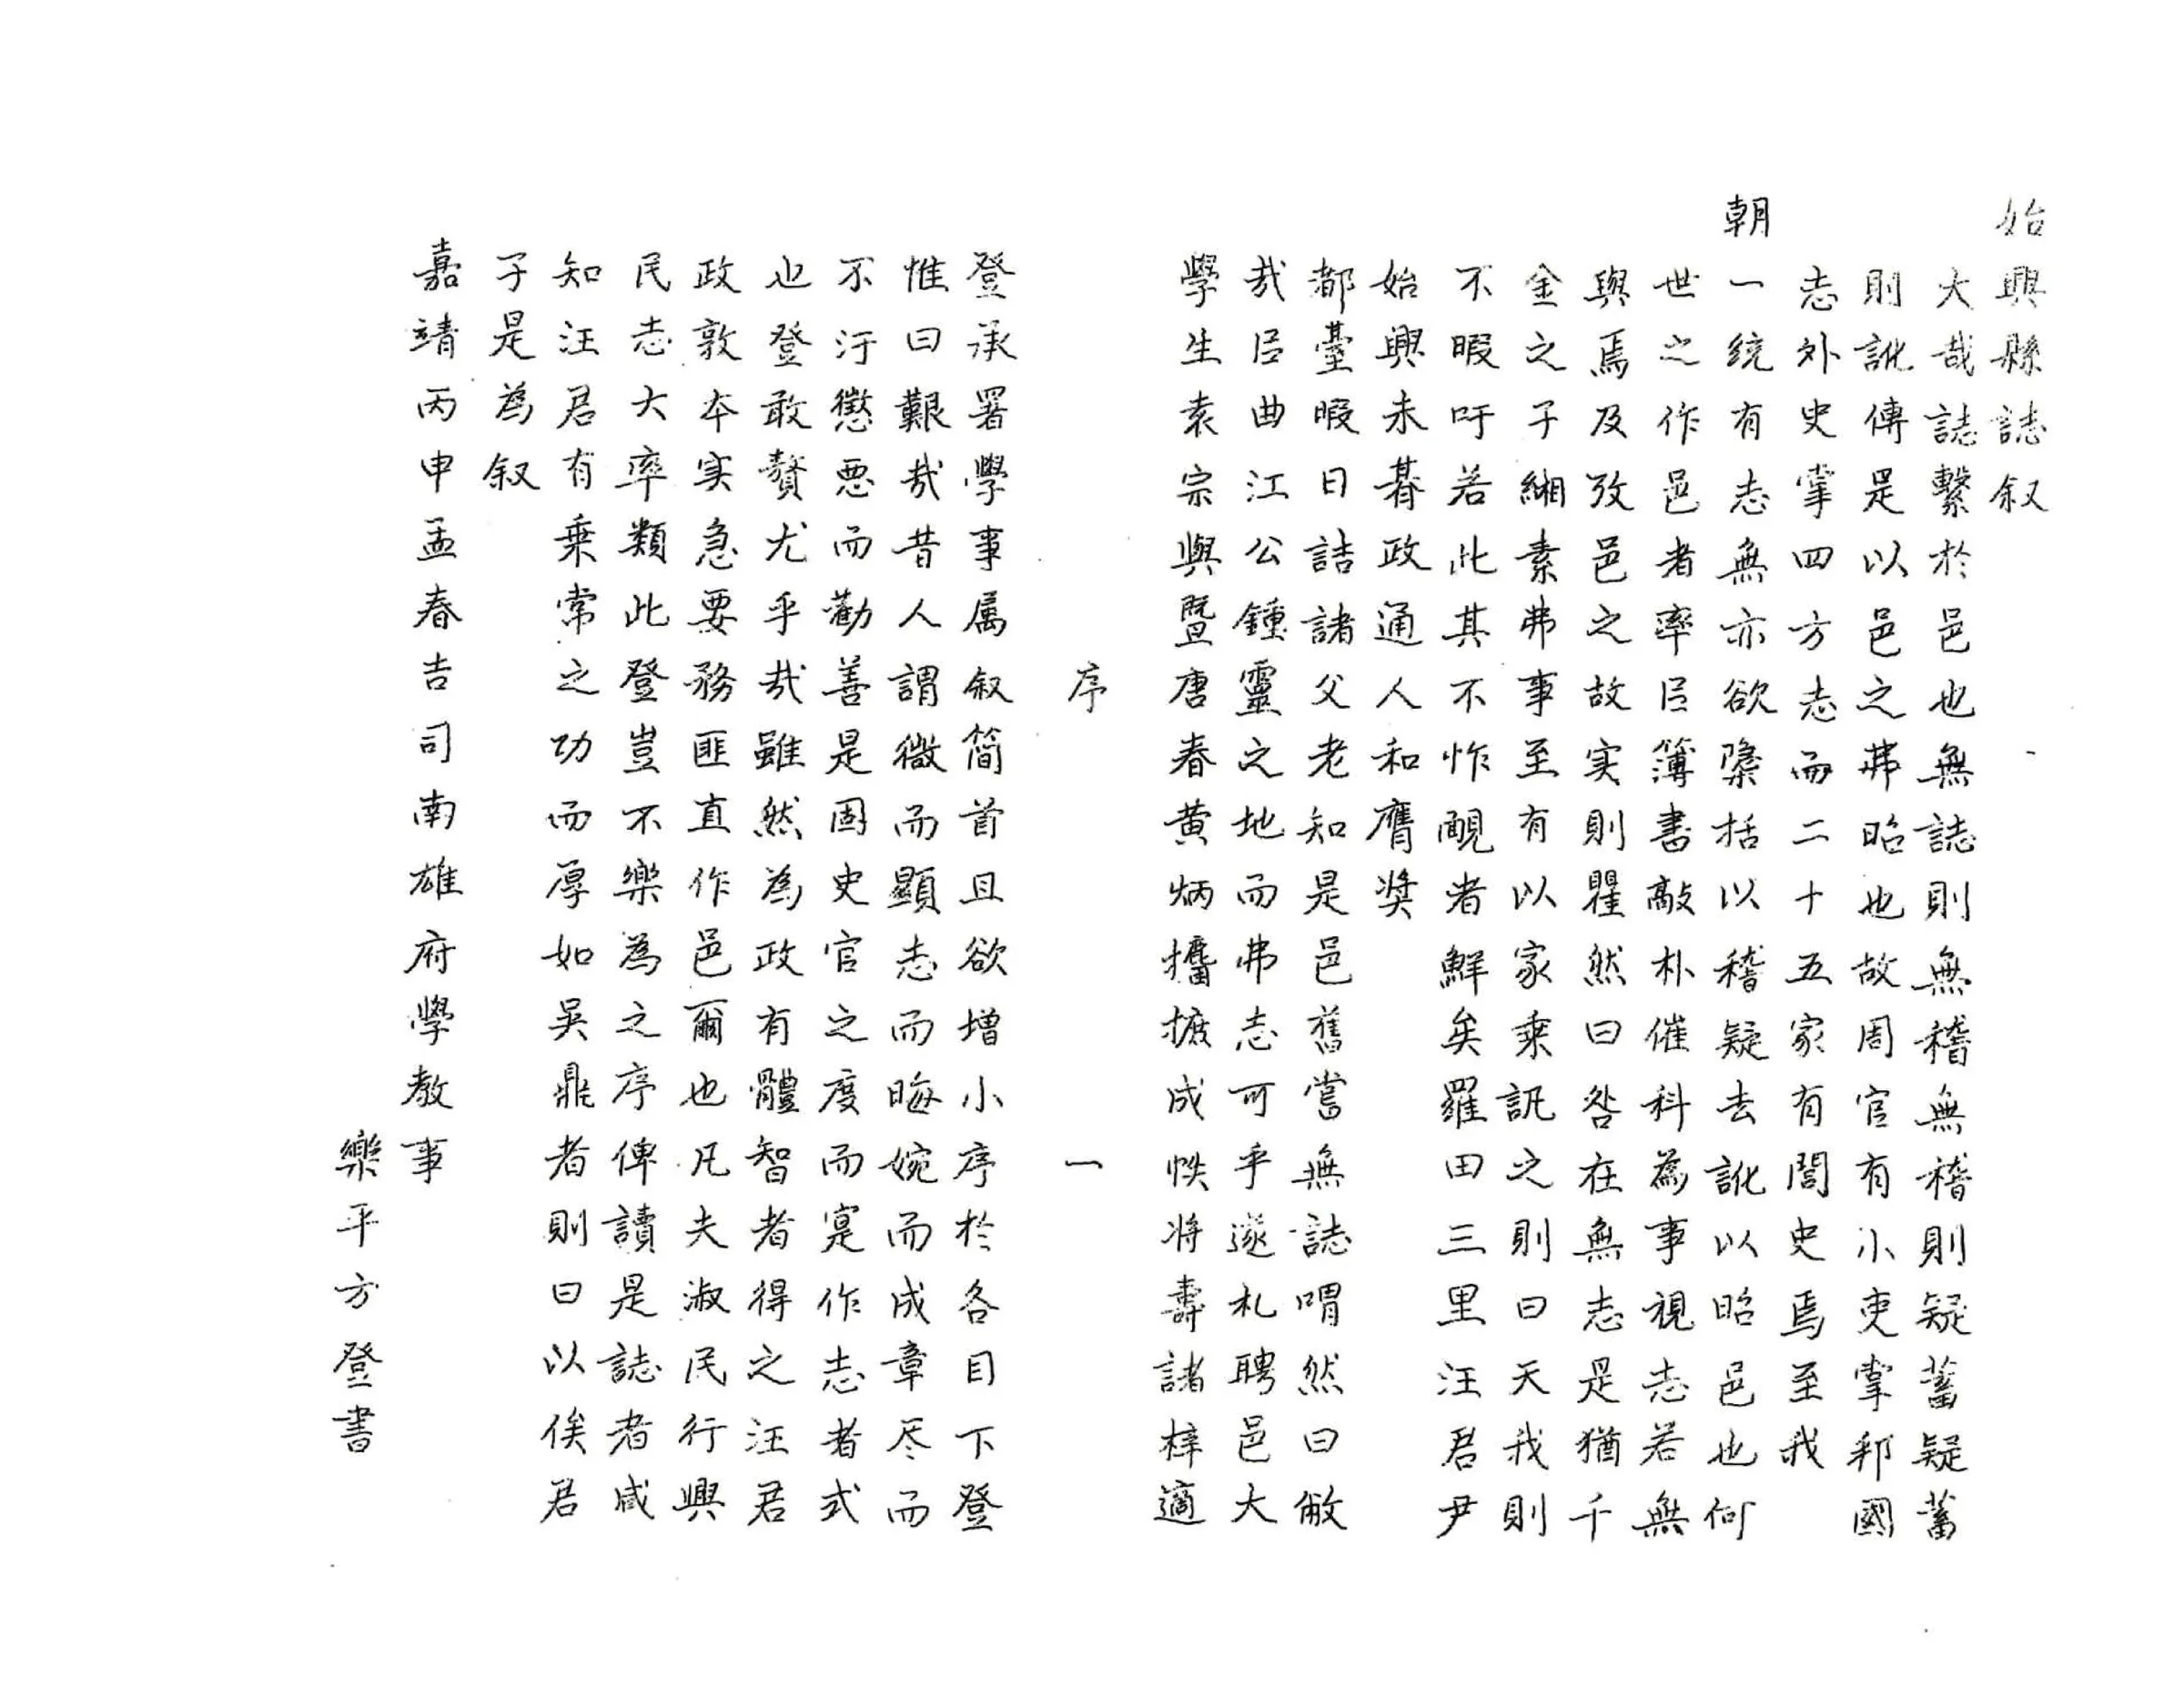 始興縣誌叙
大哉誌繫於邑也無誌則無稽無稽則疑蓄疑蓄
則訛傳是以邑之弗昭也故周官有小吏掌邦國
志外史掌四方志而二十五家有閭史焉至我
朝一統有志無亦欲檃括以稽疑去訛以昭邑也何
世之作邑者率㠯簿書敲朴催科為事視志若無
與焉及攷邑之故实則瞿然曰咎在無志是猶千
金之子緗素弗事至有以家乘訊之則曰天我則
不暇吁若此其不怍靦者鮮矣羅田三里汪君尹
始興未朞政通人和膺奨
都臺暇日詰諸父老知是邑舊嘗無誌喟然曰敝
㢤㠯曲江公鍾靈之地而弗志可乎遂札聘邑大
學生袁宗與暨唐春黄炳攟摭成帙将壽諸梓適
序
一
登承署學事属叙简首且欲增小序於各目下登
惟曰艱㢤昔人謂微而顯志而晦婉而成章尽而
不汙懲悪而勸善是固史官之度而寔作志者式
也登敢贅尤乎㢤雖然為政有體智者得之汪君
政敦夲实急要務匪直作邑爾也凡夫淑民行興
民志大率類此登豈不樂為之序俾讀是誌者咸
知汪君有乗常之功而厚如吴鼎者則曰以俟君
子是為叙
嘉靖丙申孟春吉司南雄府學教事
樂平方登書